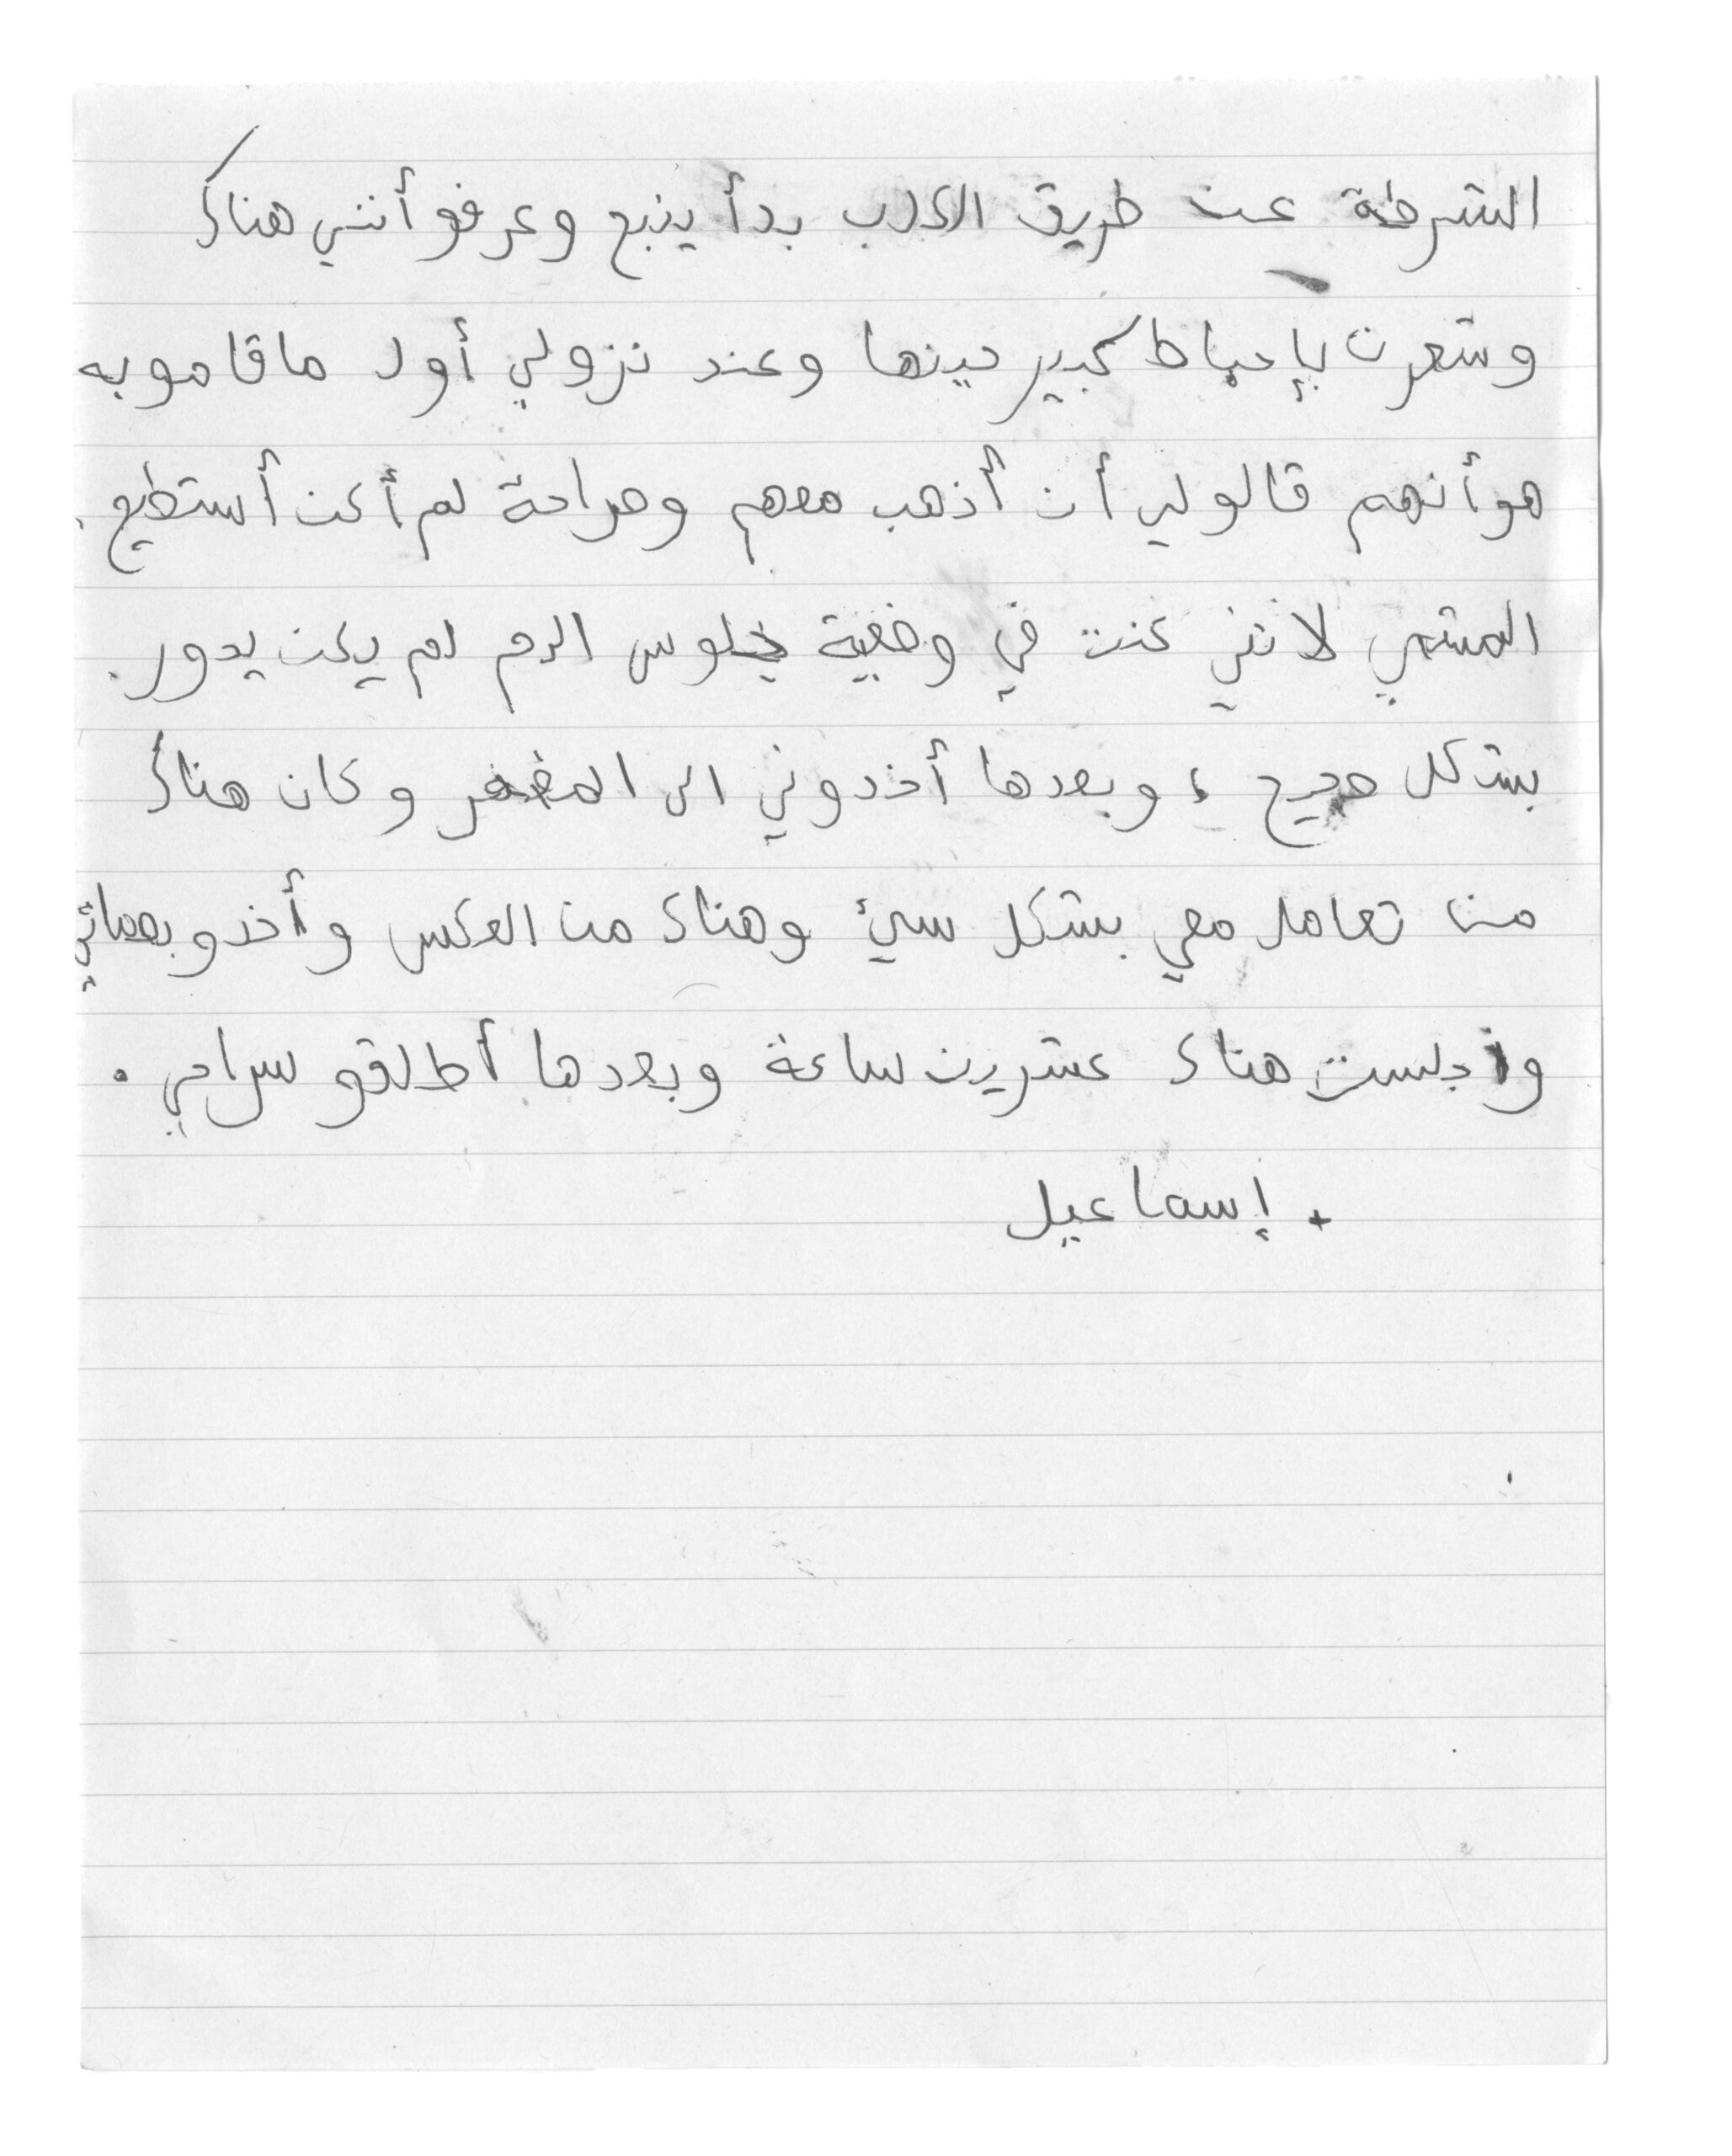 الشرطة عن طريق الكلاب بدأ ينبح وعرفو أنني هناك
وشعرت بإحباط كبير حينها وعند نزولي أول ماقاموبه
هوأنهم قالولي أن أذهب معهم وصراحة لم أكن أستطيع.
المشي لانني كنت في وضعية جلوس الدم لم يكن يدور.
بشكل صحيح، وبعدها أخدوني الى المخفر وكان هناك
من تعامل معي بشكل سيئ وهناك من العكس وأخدو بصماتي
وجلست هناك عشرين ساعة وبعدها أطلقو سراحي.
+ إسماعيل